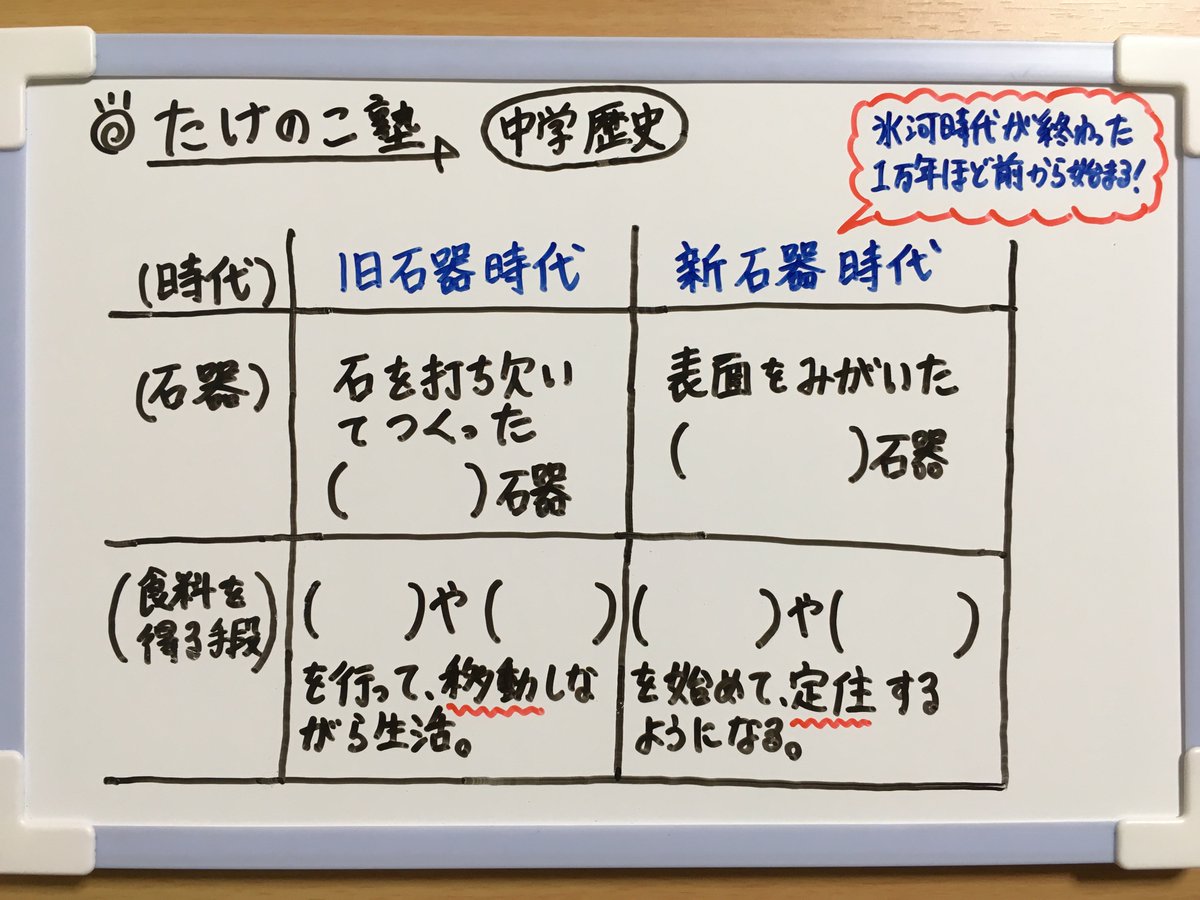 たけのこ塾
中学歴史
氷河時代が終わった
1万年ほど前から始まる!
(時代)
旧石器時代
新石器時代
(石器)
石を打ち欠い
てつくった
(　　　)石器
表面をみがいた
(　　　)石器
(食料を
得る手段)
(　　)や(　　)
を行って、移動しな
がら生活。
(　　)や(　　)
を始めて、定住する
ようになる。